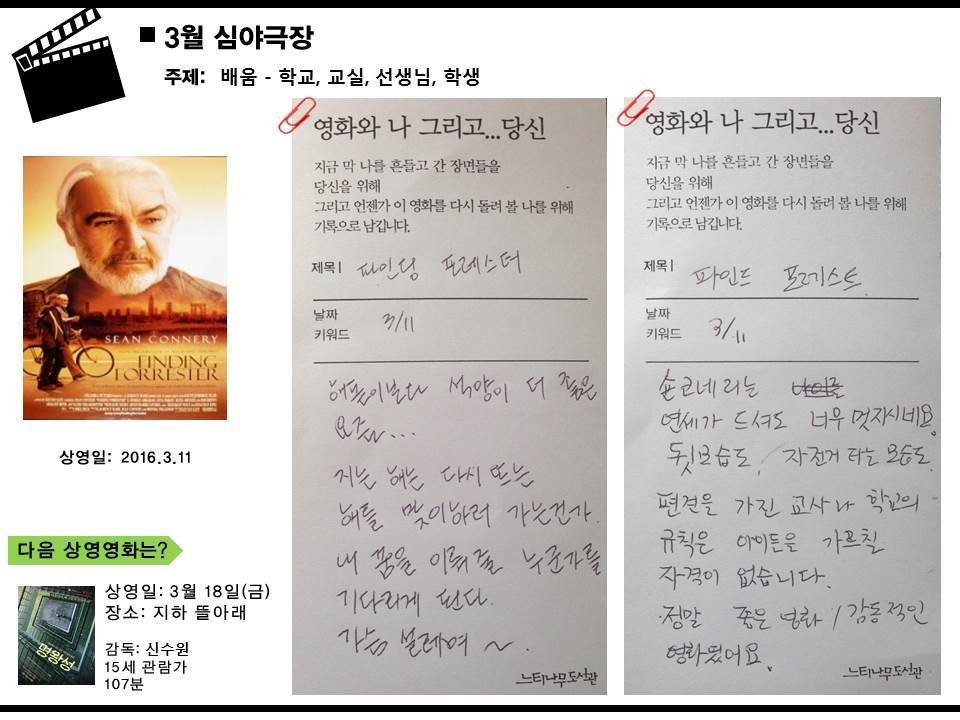 ■ 3월 심야극장
주제: 배움 - 학교, 교실, 선생님, 학생
SEAN CONNERY
FINDING
FORRESTER
상영일: 2016.3.11
다음 상영영화는?
명왕성
상영일: 3월 18일(금)
장소: 지하 뜰아래
감독: 신수원
15세 관람가
107분
영화와 나 그리고...당신
지금 막 나를 흔들고 간 장면들을
당신을 위해
그리고 언젠가 이 영화를 다시 돌려 볼 나를 위해
기록으로 남깁니다.
제목| 파인딩 포레스터
날짜 3/11
키워드
해돋이보다 석양이 더 좋은
요즘...
지는 해는 다시 또는
해를 맞이하러 가는건가.
내 꿈을 이뤄줄 누군가를
기다리게 된다.
가슴 설레며 ~.
느티나무도서관
영화와 나 그리고...당신
지금 막 나를 흔들고 간 장면들을
당신을 위해
그리고 언젠가 이 영화를 다시 돌려 볼 나를 위해
기록으로 남깁니다.
제목| 파인드 포레스트
날짜 3/11
키워드
숀코네리는
연세가 드셔도 너무 멋지시네요.
뒷모습도, 자전거 타는 모습도.
편견을 가진 교사나 학교의
규칙은 아이들을 가르칠
자격이 없습니다.
정말 좋은 영화, 감동적인
영화였어요.
느티나무도서관